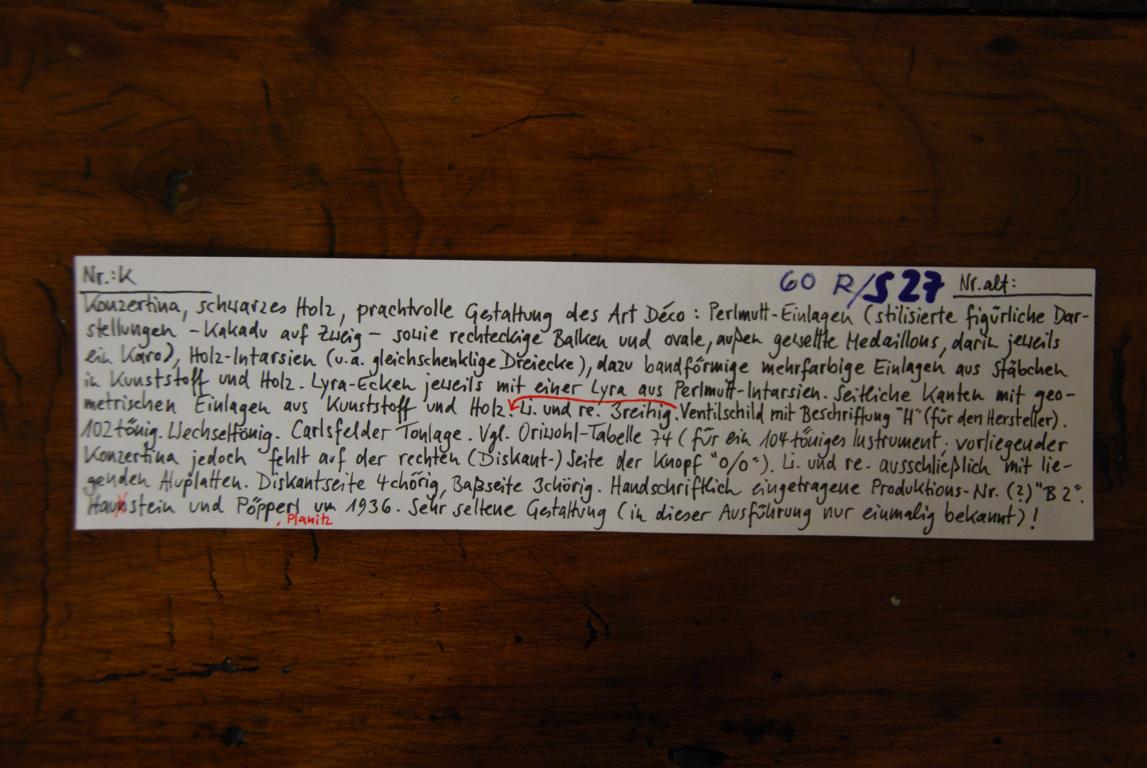 Nr.: K
60 R/S 27 Nr. alt:
Konzertina, schwarzes Holz, prachtvolle Gestaltung des Art Déco: Perlmutt-Einlagen (stilisierte figürliche Dar-
stellungen - Kakadu auf Zweig - sowie rechteckige Balken und ovale, außen gewellte Medaillons, darin jeweils
ein Karo), Holz-Intarsien (u.a. gleichschenklige Dreiecke), dazu bandförmige mehrfarbige Einlagen aus Stäbchen
in Kunststoff und Holz. Lyra-Ecken jeweils mit einer Lyra aus Perlmutt-Intarsien. Seitliche Kanten mit geo-
metrischen Einlagen aus Kunststoff und Holz. Li. und re. 3reihig. Ventilschild mit Beschriftung "H" (für den Hersteller).
102tönig. Wechseltönig. Carlsfelder Tonlage. Vgl. Oriwohl-Tabelle 74 (für ein 104töniges Instrument; vorliegender
Konzertina jedoch fehlt auf der rechten (Diskant-) Seite der Knopf "0/0"). Li. und re. ausschließlich mit lie-
genden Aluplatten. Diskantseite 4chörig, Baßseite 3chörig. Handschriftlich eingetragene Produktions-Nr. (?) "B 2".
Haustein und Pöpperl um 1936. Sehr seltene Gestaltung (in dieser Ausführung nur einmalig bekannt)!
, Planitz